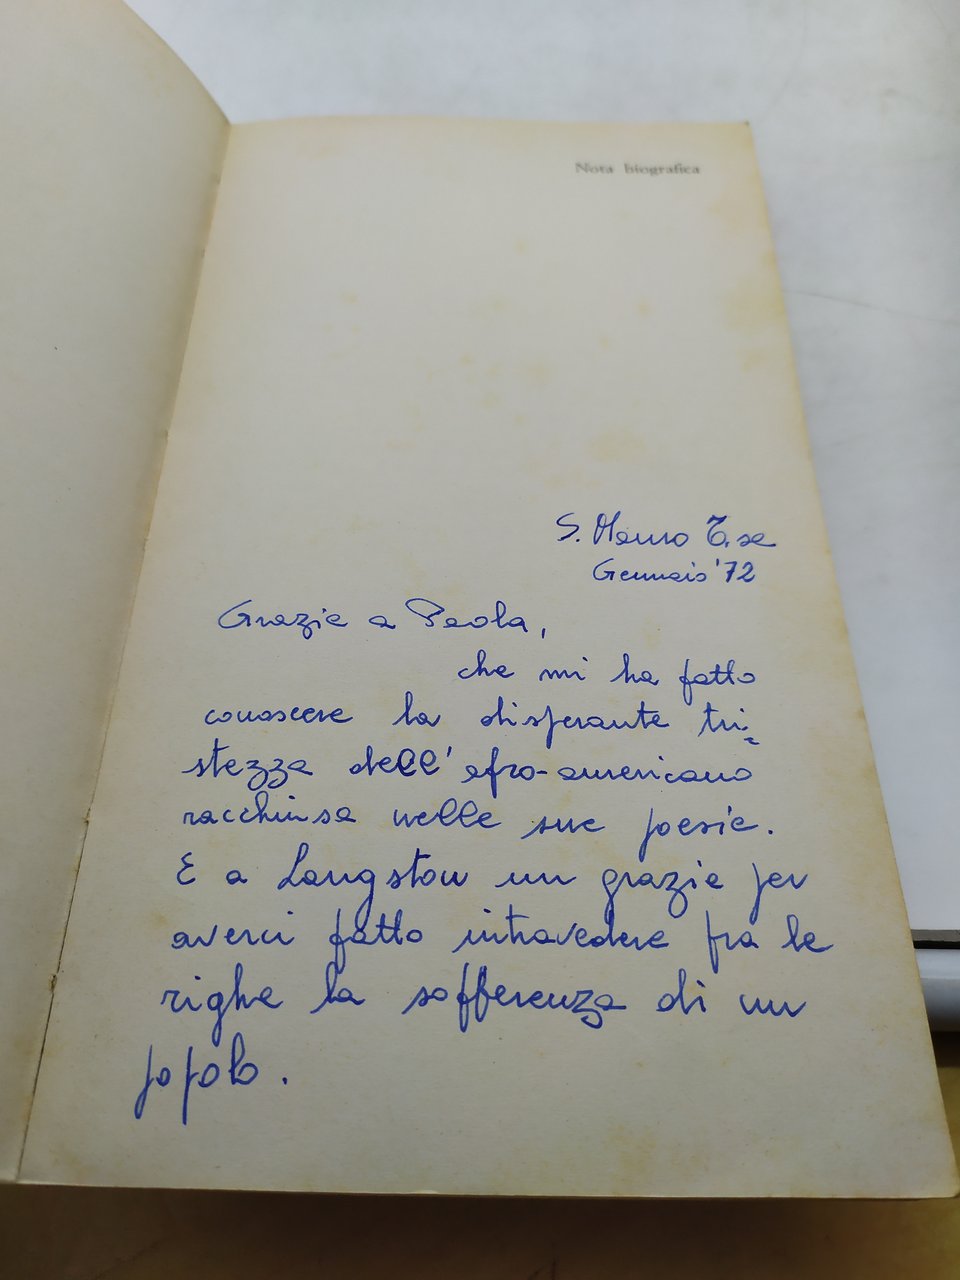 Nota biografica
S. Mauro T.se
Gennaio '72
Grazie a Paola,
che mi ha fatto
conoscere la disperante tri=
stezza dell'afro-americano
racchiusa nelle sue poesie.
E a Langston un grazie per
averci fatto intravedere fra le
righe la sofferenza di un
popolo.